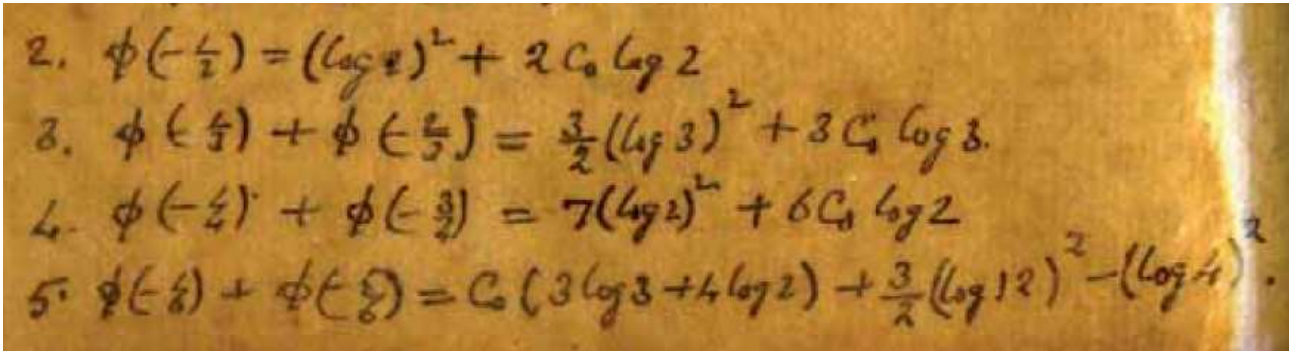 2. φ(-1/2) = (log 2)² + 2 C₀ log 2
3. φ(-1/3) + φ(-2/3) = 3/2 (log 3)² + 3 C₀ log 3.
4. φ(-1/4) + φ(-3/4) = 7(log 2)² + 6 C₀ log 2
5. φ(-1/6) + φ(-5/6) = C₀ (3 log 3 + 4 log 2) + 3/2 (log 12)² - (log 4)².